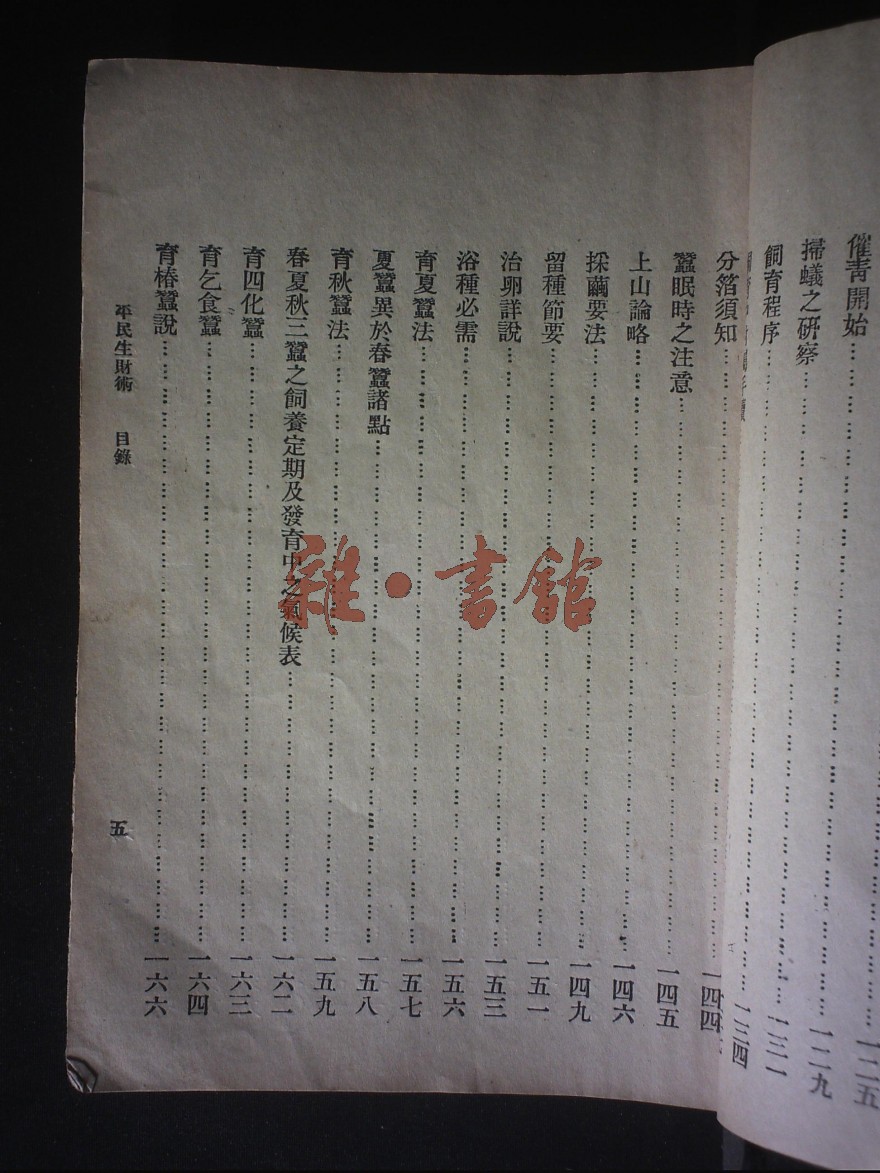 催青開始……一二五
掃蟻之研察……一二九
飼育程序……一三一
一三四
分箔須知……一四四
蠶眠時之注意……一四五
上山論略……一四六
採繭要法……一四九
留種節要……一五一
治卵詳說……一五三
浴種必需……一五六
育夏蠶法……一五七
夏蠶異於春蠶諸點……一五八
育秋蠶法……一五九
春夏秋三蠶之飼養定期及發育中之氣候表……一六二
育四化蠶……一六三
育乞食蠶……一六四
育椿蠶說……一六六
平民生財術 目錄 五
雜·書館